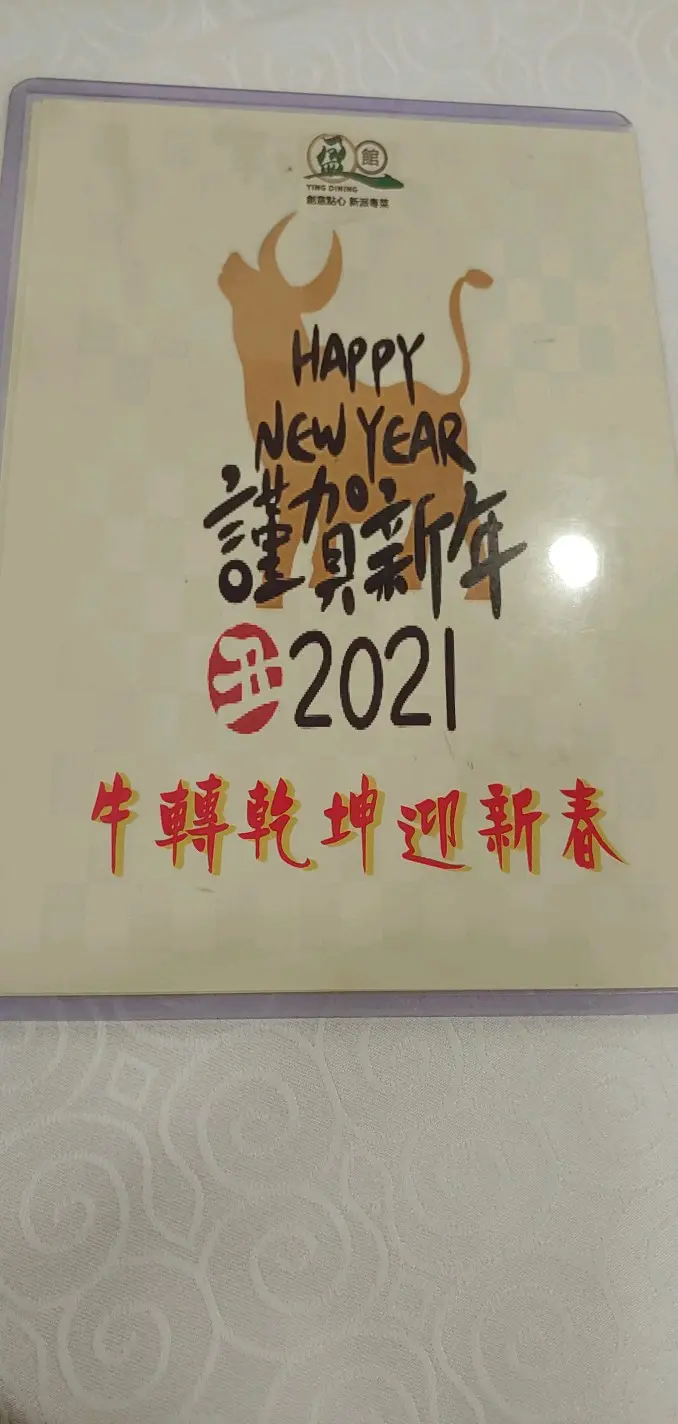 盈館
YING DINING
創意點心 新派粵菜
HAPPY
NEW YEAR
謹賀新年
丑2021
牛轉乾坤迎新春